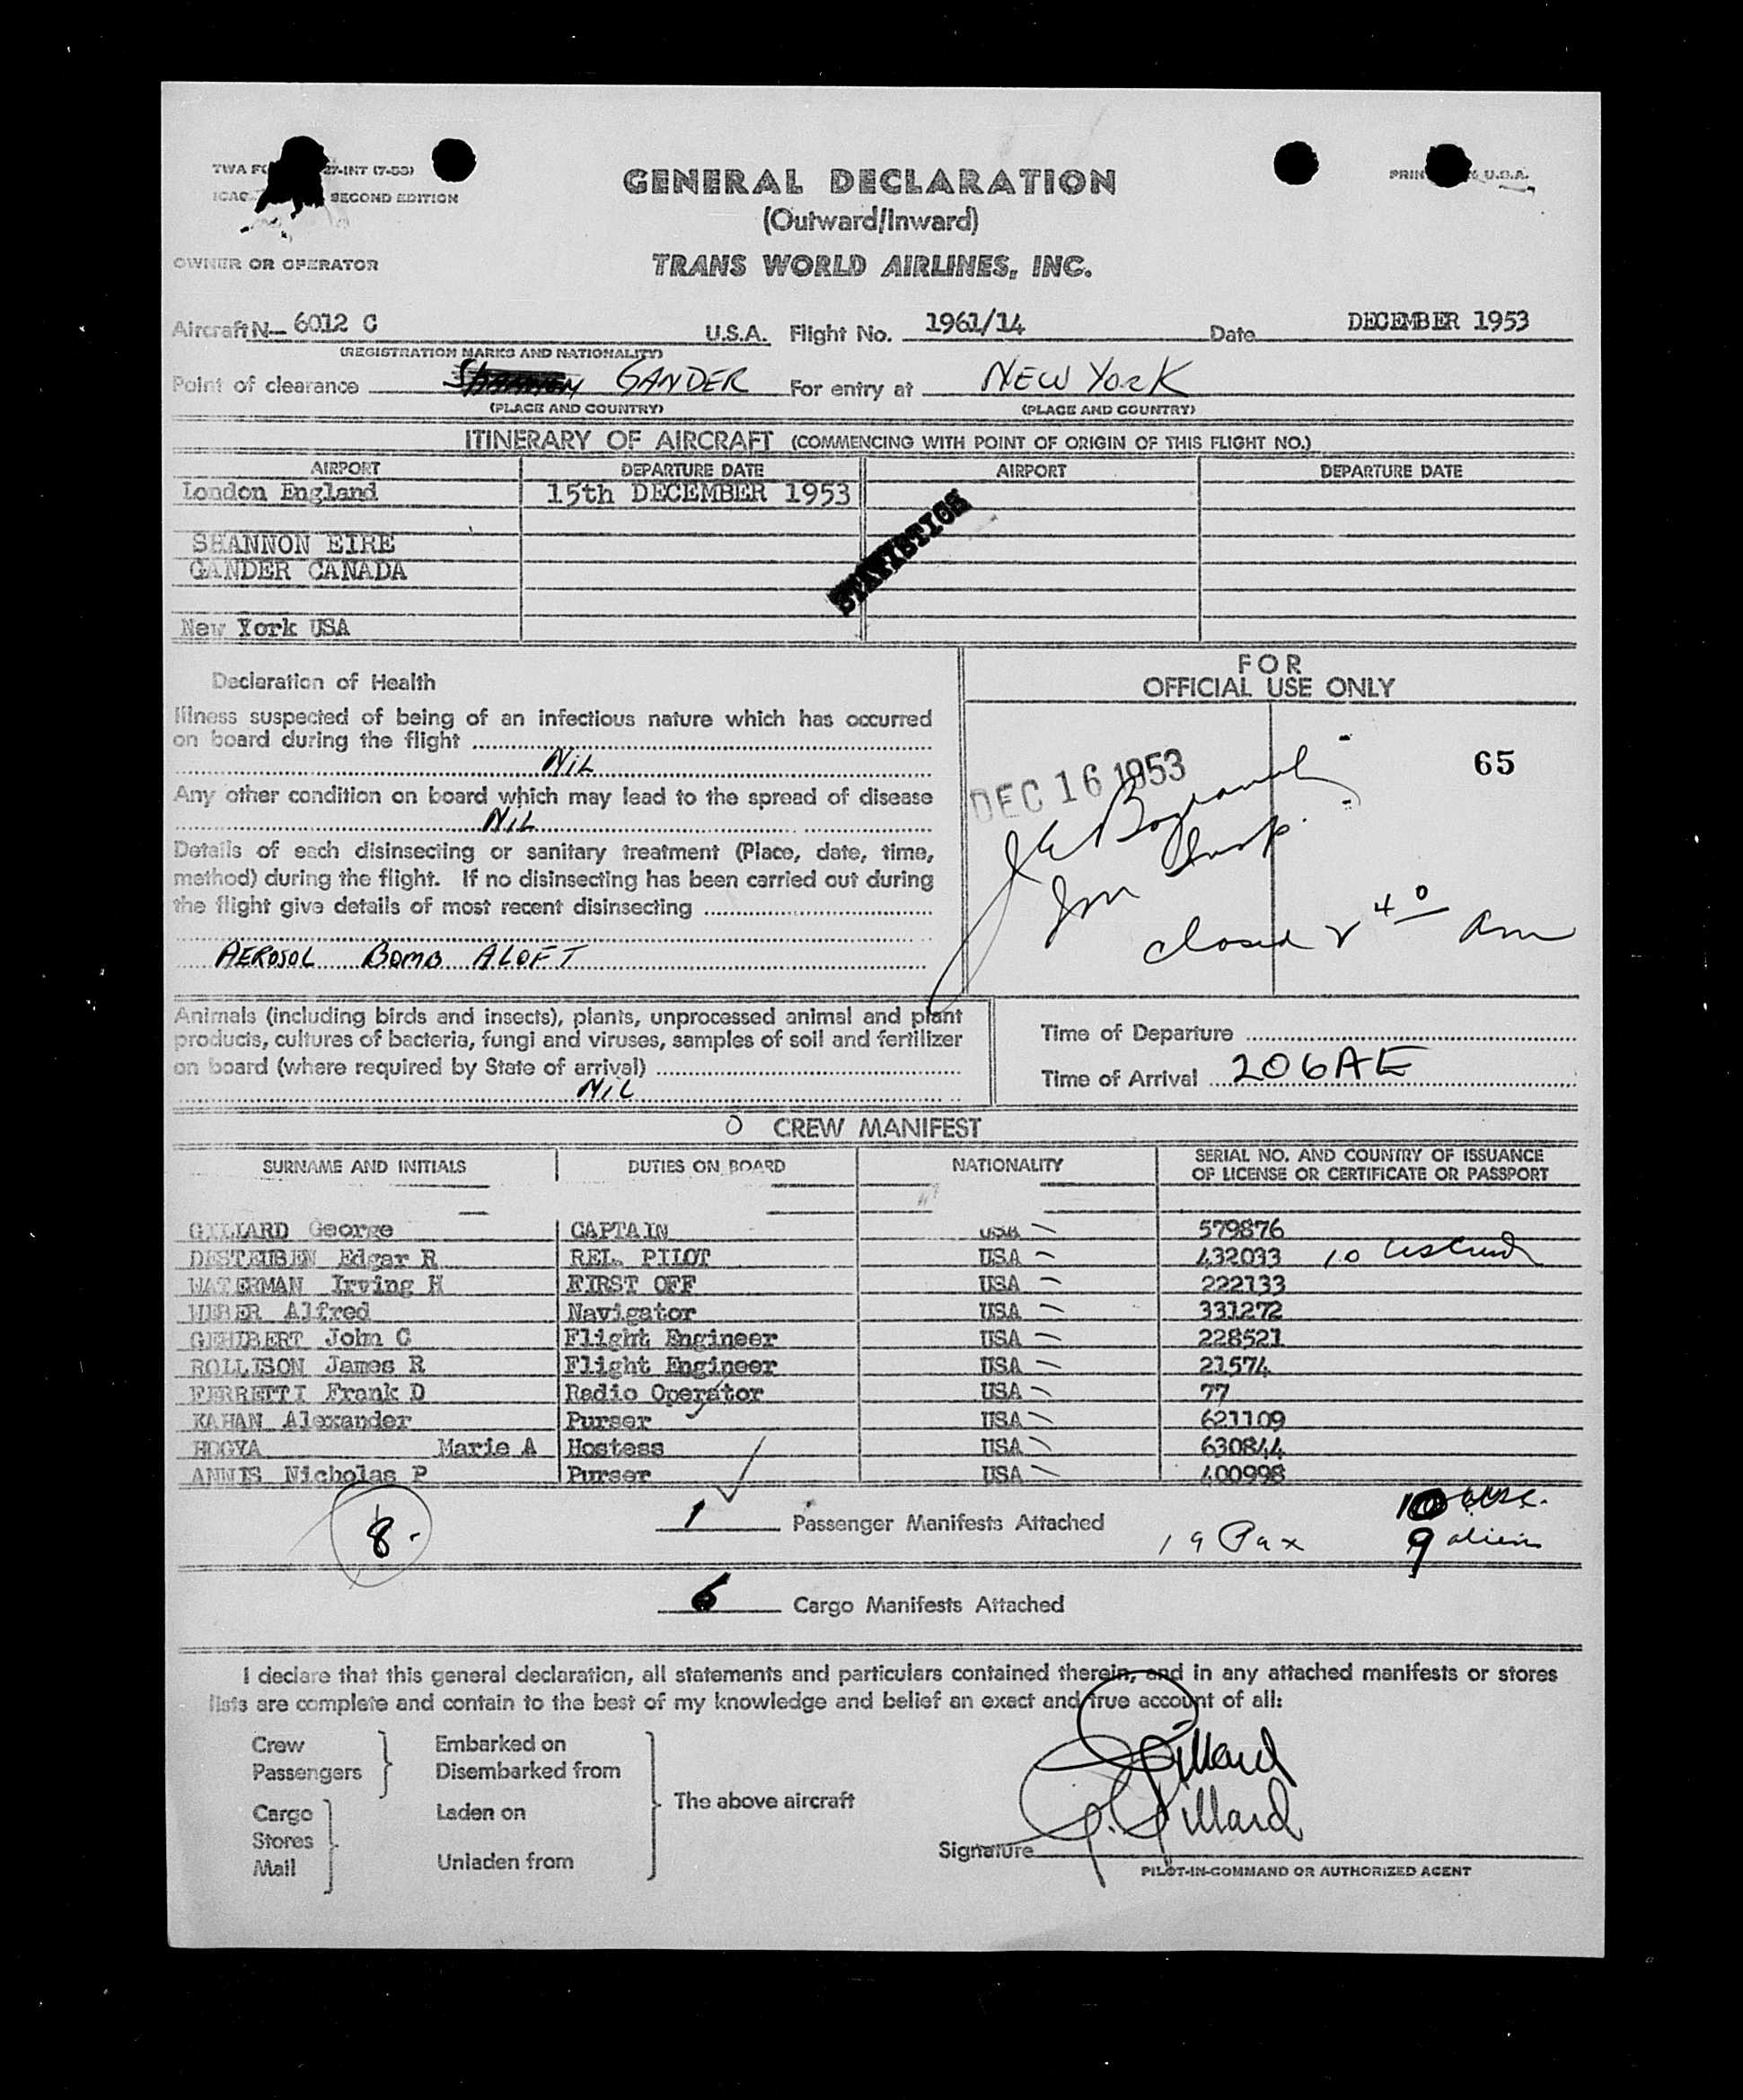 GENERAL DECLARATION
(Outward/Inward)
TRANS WORLD AIRLINES, INC.
TWA 27-INT (7-53)
SECOND EDITION
U.S.A.
OWNER OR OPERATOR
Aircraft N— 6012 C U.S.A. Flight No. 1961/14 Date DECEMBER 1953
(REGISTRATION MARKS AND NATIONALITY)
Point of clearance GANDER For entry at NEW YORK
(PLACE AND COUNTRY) (PLACE AND COUNTRY)
ITINERARY OF AIRCRAFT (COMMENCING WITH POINT OF ORIGIN OF THIS FLIGHT NO.)
AIRPORT DEPARTURE DATE AIRPORT DEPARTURE DATE
London England 15th DECEMBER 1953
STATISTICS
SHANNON EIRE
GANDER CANADA
New York USA
Declaration of Health
Illness suspected of being of an infectious nature which has occurred
on board during the flight
NiL
Any other condition on board which may lead to the spread of disease
NiL
Details of each disinsecting or sanitary treatment (Place, date, time,
method) during the flight. If no disinsecting has been carried out during
the flight give details of most recent disinsecting
AEROSOL BOMB ALOFT
FOR
OFFICIAL USE ONLY
65
DEC 16 1953
Imm Insp.
closed 2 40 am
Animals (including birds and insects), plants, unprocessed animal and plant
products, cultures of bacteria, fungi and viruses, samples of soil and fertilizer
on board (where required by State of arrival)
NiL
Time of Departure
Time of Arrival 206AE
O CREW MANIFEST
SURNAME AND INITIALS DUTIES ON BOARD NATIONALITY SERIAL NO. AND COUNTRY OF ISSUANCE
OF LICENSE OR CERTIFICATE OR PASSPORT
GILLARD George CAPTAIN USA 579876
DESTEUBEN Edgar R REL. PILOT USA 432033 10
WATERMAN Irving H FIRST OFF USA 222133
Alfred Navigator USA 331272
John C Flight Engineer USA 228521
ROLLISON James R Flight Engineer USA 21574
FERRETTI Frank D Radio Operator USA 77
KAHAN Alexander Purser USA 621109
HOGYA Marie A Hostess USA 630844
ANNIS Nicholas P Purser USA 400998
8.
1 Passenger Manifests Attached
19 Pax
10 USC.
9 aliens
6 Cargo Manifests Attached
I declare that this general declaration, all statements and particulars contained therein, and in any attached manifests or stores
lists are complete and contain to the best of my knowledge and belief an exact and true account of all:
Crew
Passengers
Embarked on
Disembarked from
Cargo
Stores
Mail
Laden on
Unladen from
The above aircraft
G. Gillard
G. Gillard
Signature
PILOT-IN-COMMAND OR AUTHORIZED AGENT